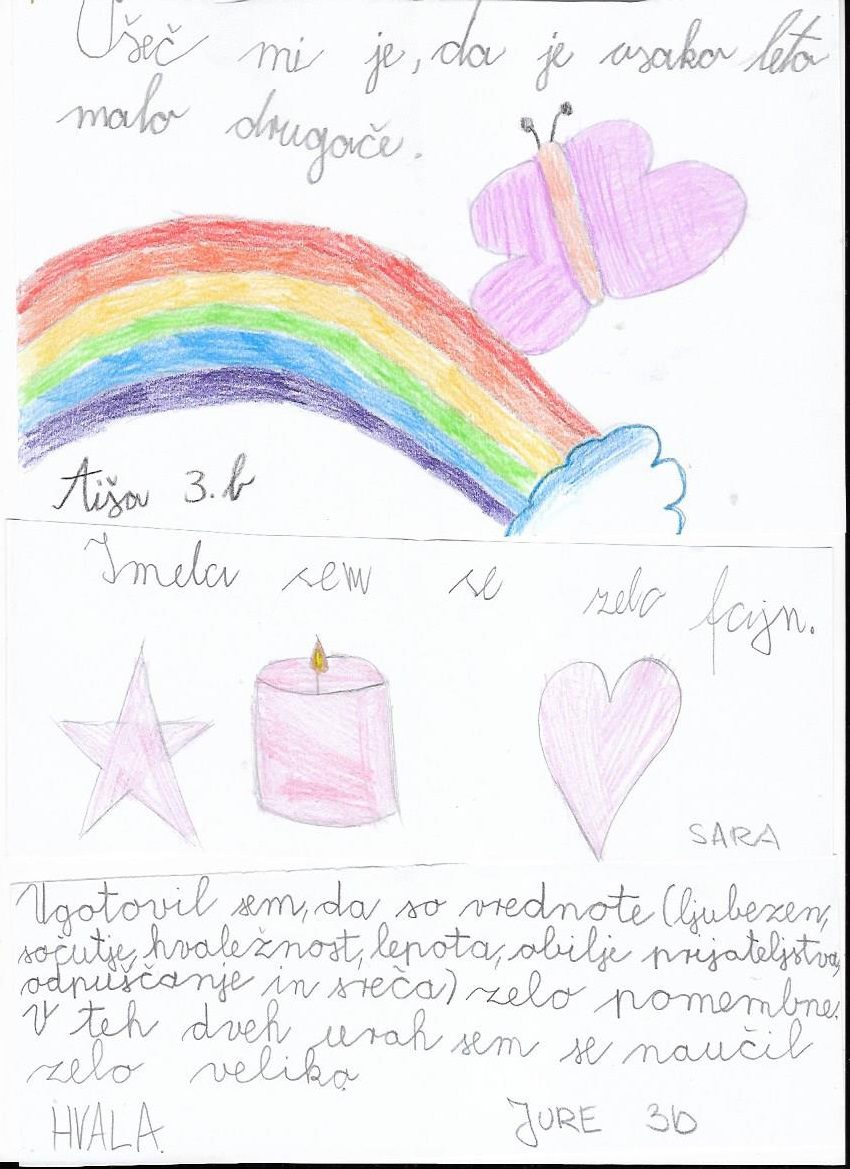 Všeč mi je, da je vsako leto
malo drugače.
Aiša 3.b
Imela sem se zelo fajn.
SARA
Ugotovil sem, da so vrednote (ljubezen,
sočutje, hvaležnost, lepota, obilje prijateljstva,
odpuščanje in sreča) zelo pomembne.
V teh dveh urah sem se naučil
zelo veliko
HVALA.
JURE 3b